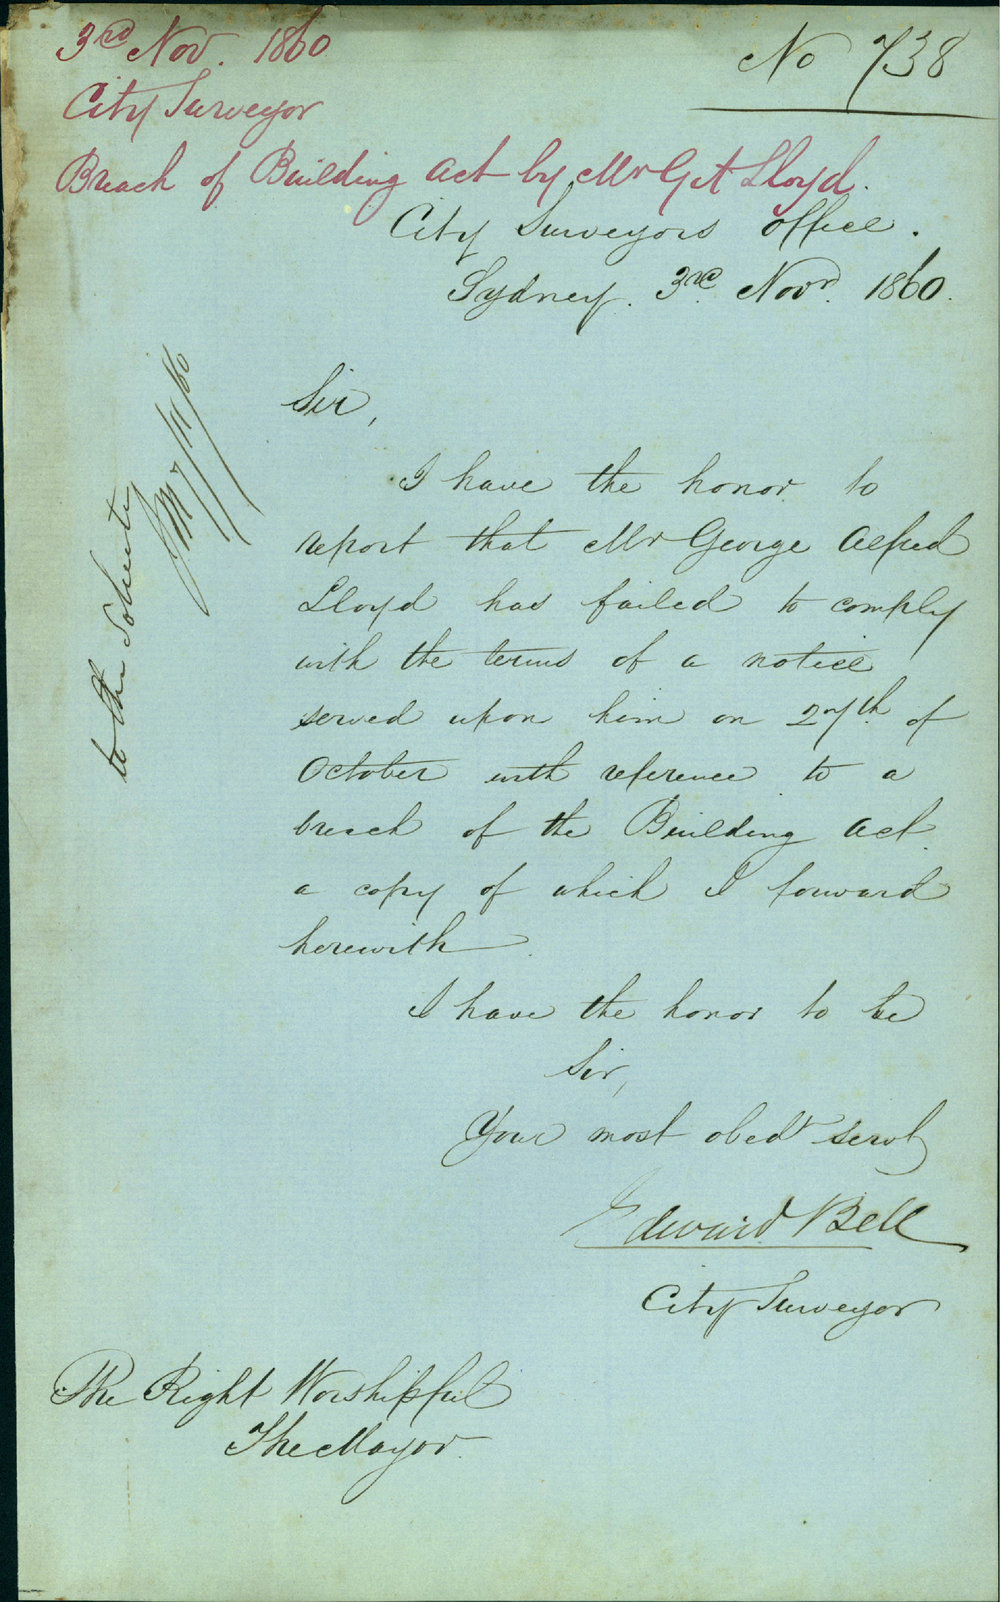 3rd Nov. 1860
No 738
City Surveyor
Breach of Building Act by Mr G A Lloyd.
City Surveyors Office.
Sydney. 3rd Novr. 1860.
Sir,
I have the honor to
report that Mr George Alfred
Lloyd has failed to comply
with the terms of a notice
served upon him on 27th of
October with reference to a
breach of the Building Act
a copy of which I forward
herewith.
I have the honor to be
Sir,
Your most obedt servt
Edward Bell
City Surveyor
The Right Worshipful
The Mayor.
to the Solicitor
7/11/60